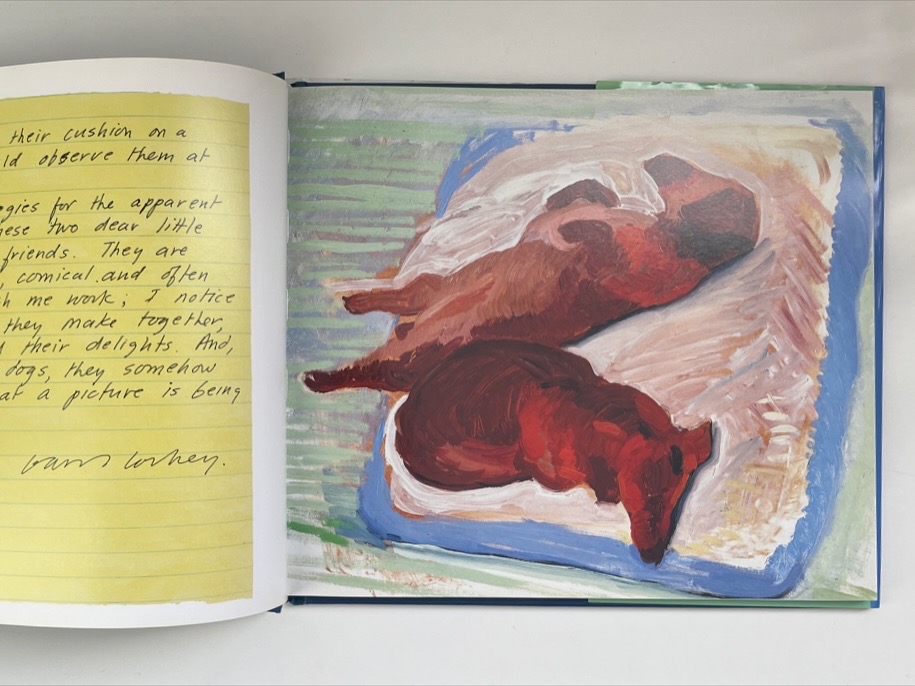 their cushion on a
ld observe them at
gies for the apparent
ese two dear little
friends. They are
, comical and often
h me work; I notice
they make together,
their delights. And,
dogs, they somehow
at a picture is being